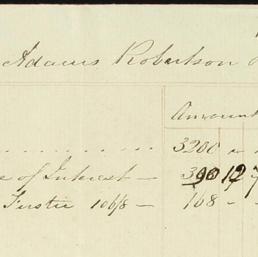 Adams Robertson
Amount
3200
e of Interest — 390 12 7
106/8 — 168 - -